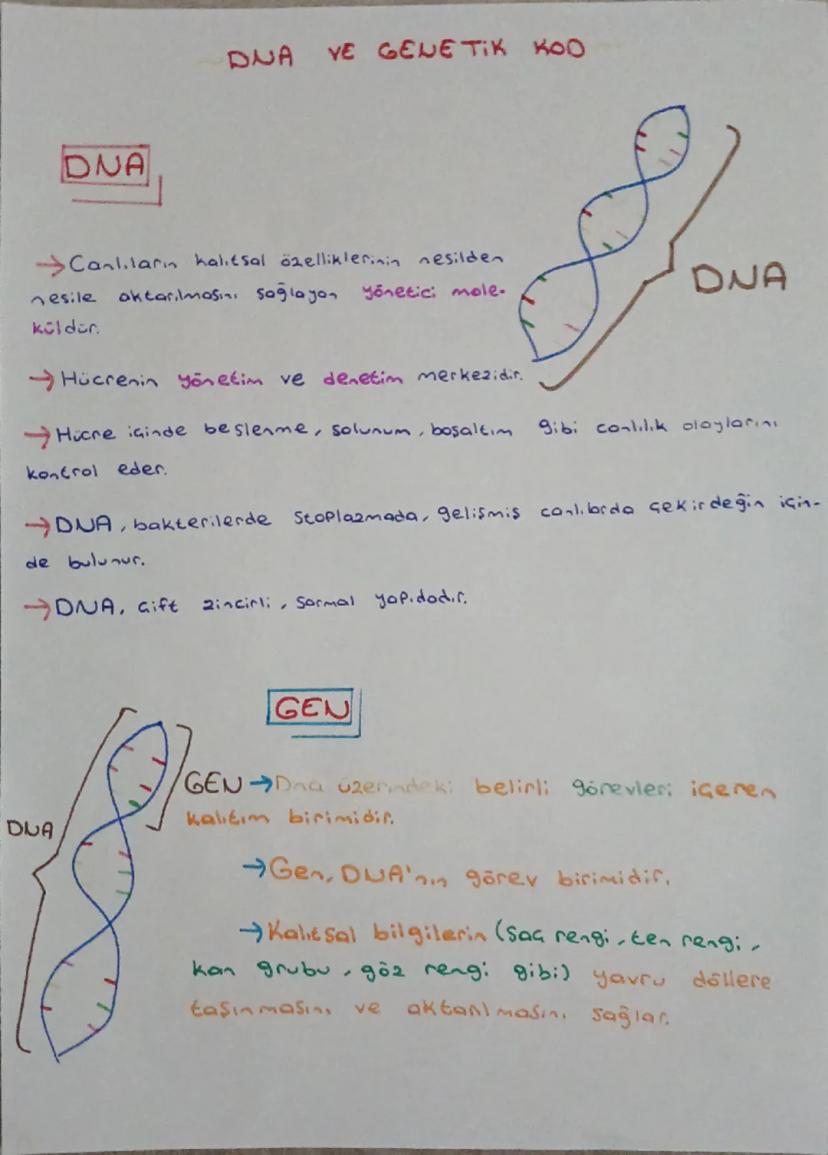 DNA VE GENETİK KOD
DNA
→ Canlıların kalıtsal özelliklerinin nesilden
nesile aktarılmasını sağlayan yönetici mole-
küldür.
DNA
→ Hücrenin yönetim ve denetim merkezidir.
→ Hücre içinde beslenme, solunum, boşaltım gibi canlılık olaylarını
kontrol eder.
→ DNA, bakterilerde stoplazmada, gelişmiş canlılarda çekirdeğin için-
de bulunur.
→ DNA, çift zincirli, sarmal yapıdadır.
GEN
GEN → Dna üzerindeki belirli görevleri içeren
kalıtım birimidir.
DNA
→ Gen, DNA'nın görev birimidir.
→ Kalıtsal bilgilerin (saç rengi, ten rengi,
kan grubu, göz rengi gibi) yavru döllere
taşınmasını ve aktarılmasını sağlar.